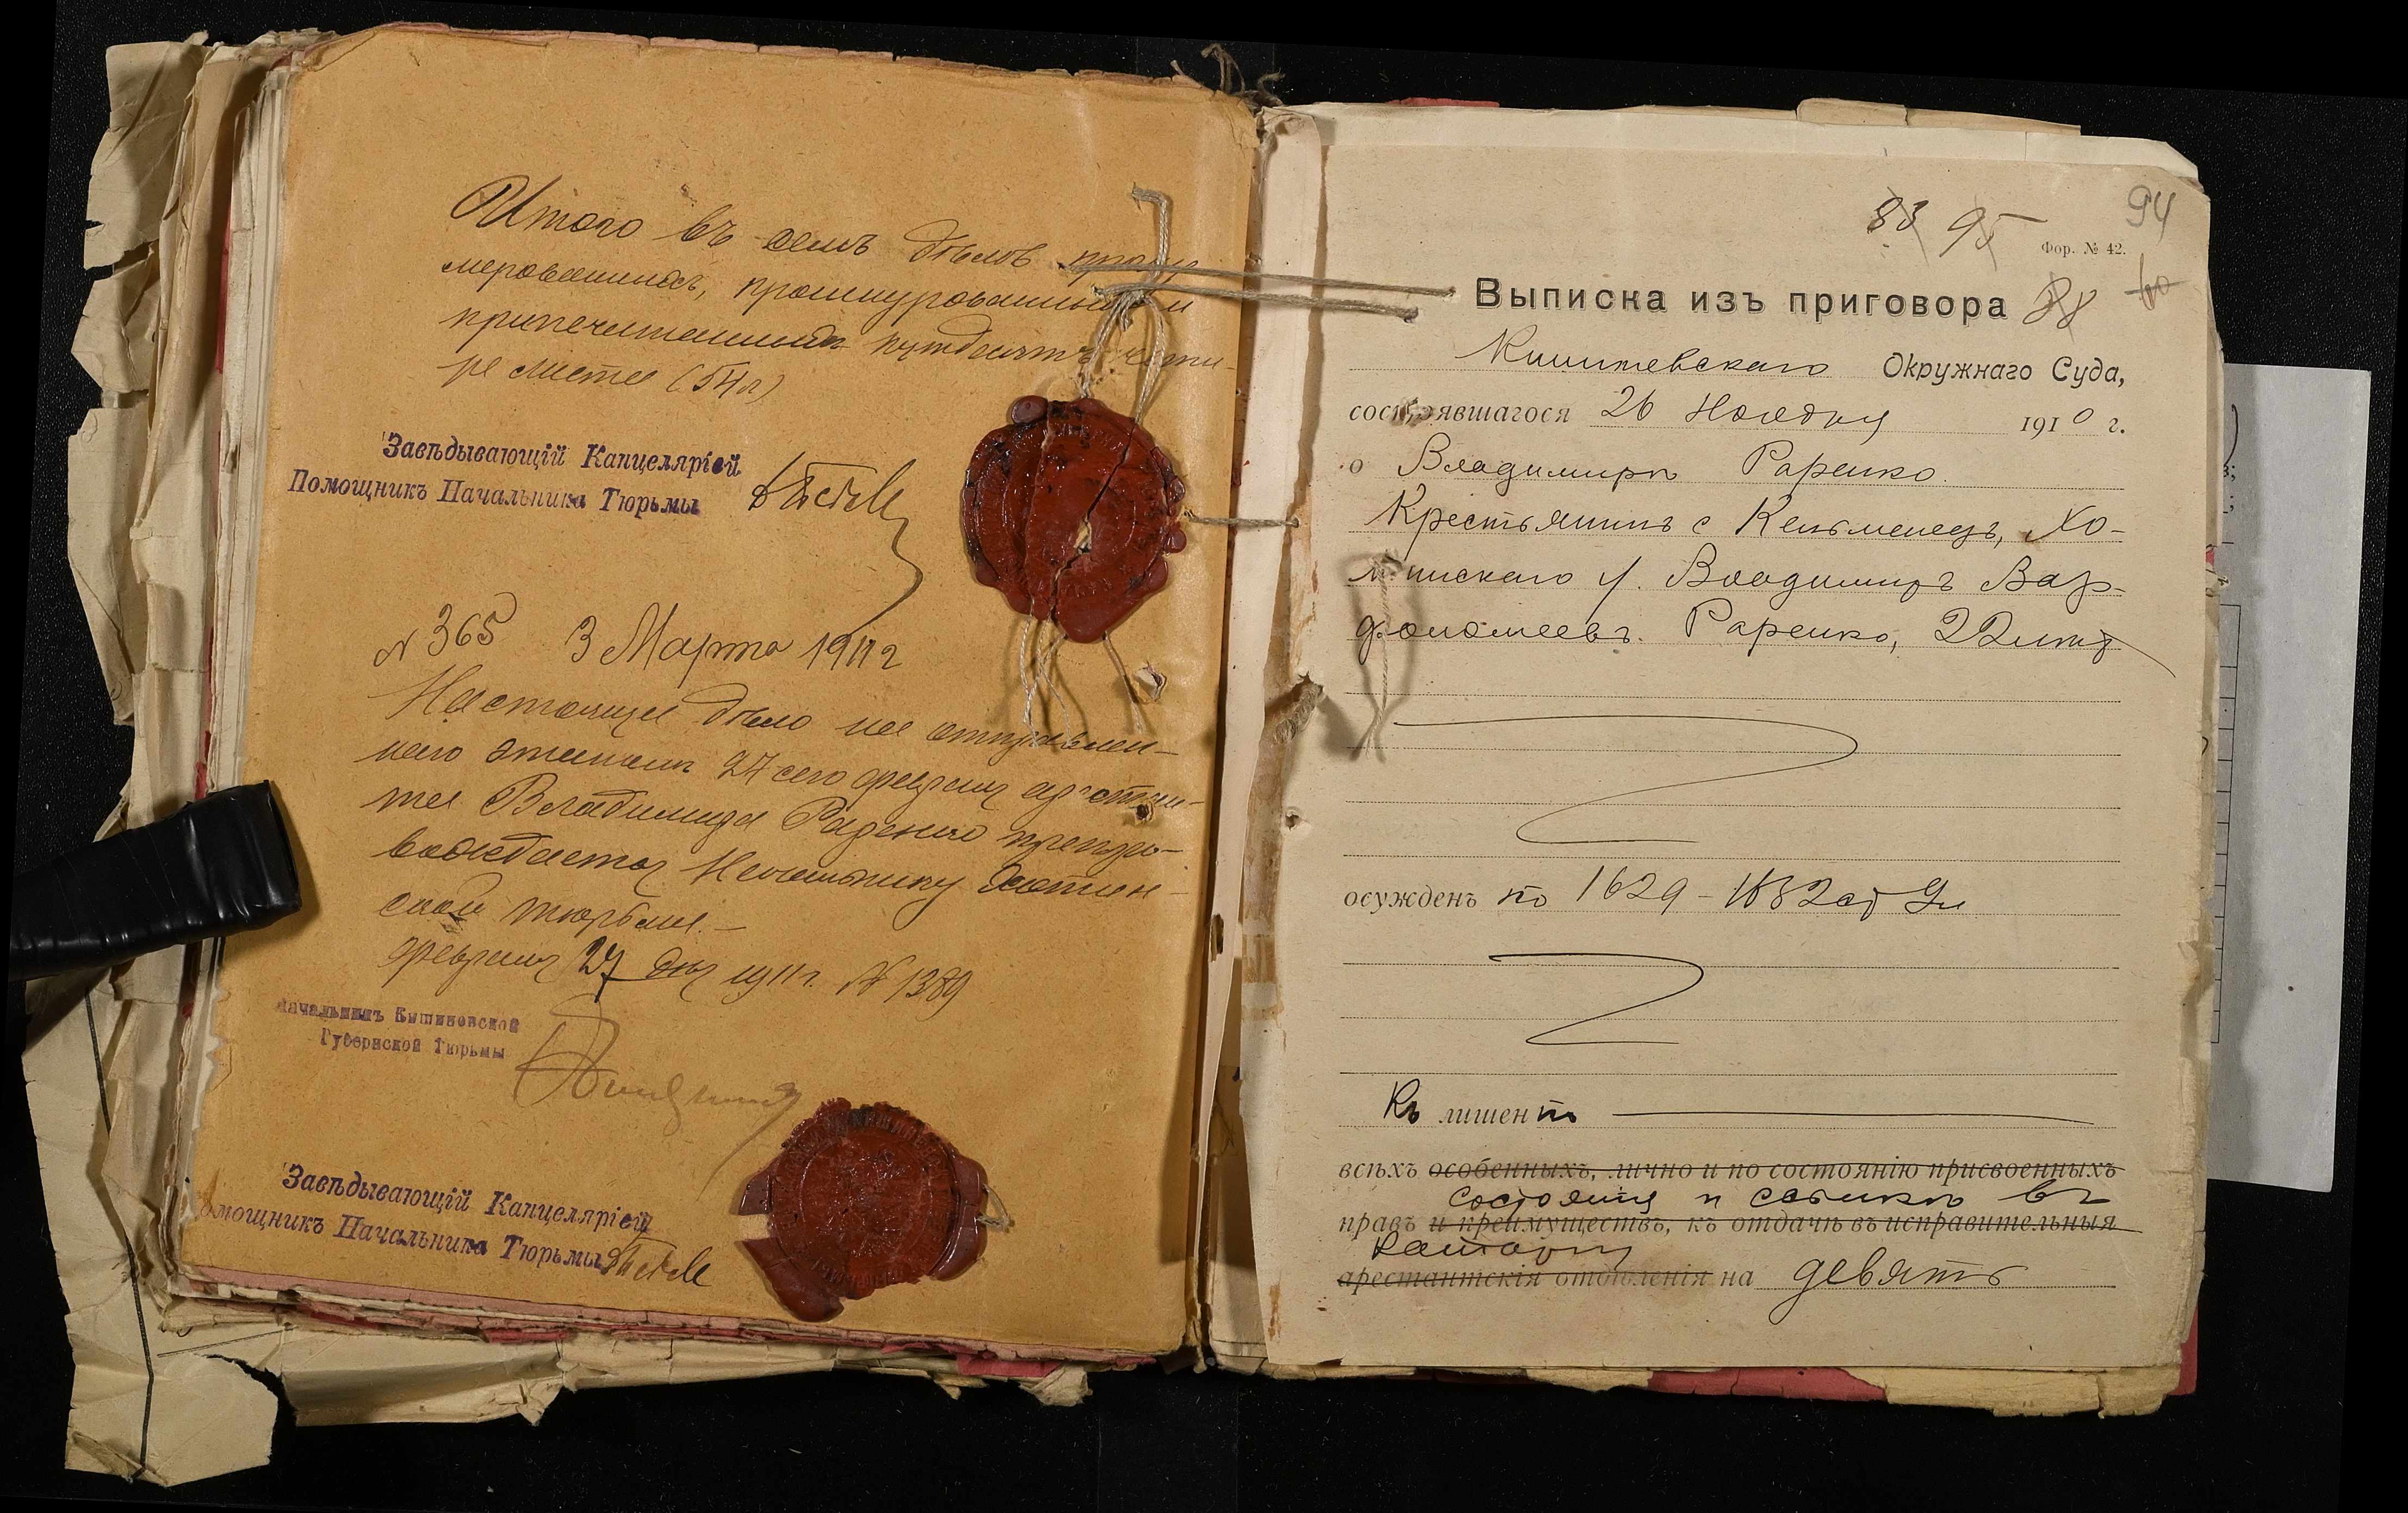 Итого въ семъ дѣлѣ прону-
мерованныхъ, прошнурованныхъ и
припечатанныхъ пятьдесятъ четы-
ре листа (54 л)
Завѣдывающій Канцеляріей
Помощникъ Начальника Тюрьмы
№ 365 3 Марта 1911 г
Настоящее дѣло на отправлен-
наго этапомъ 27 сего февраля арестан-
та Владимира Раренко препро-
вождается Начальнику Хотин-
ской тюрьмы.-
февраля 27 дня 1911 г. № 1389
Начальникъ Кишиневской
Губернской Тюрьмы
Завѣдывающій Канцеляріей
Помощникъ Начальника Тюрьмы
83 95 94
Фор. № 42.
Выписка изъ приговора 88
Кишиневскаго Окружнаго Суда,
состоявшагося 26 Ноября 1910 г.
о Владимирѣ Раренко.
Крестьянинъ с Кельменецъ, Хо-
тинскаго у. Владимиръ Вар-
фоломеевъ Раренко, 22 лѣтъ
осужденъ по 1629-1632 ст Ул
Къ лишенію
всѣхъ особенныхъ, лично и по состоянію присвоенныхъ
состоянія и ссылкѣ въ
правъ и преимуществъ, къ отдачѣ въ исправительныя
каторгу
арестантскія отдѣленія на девять